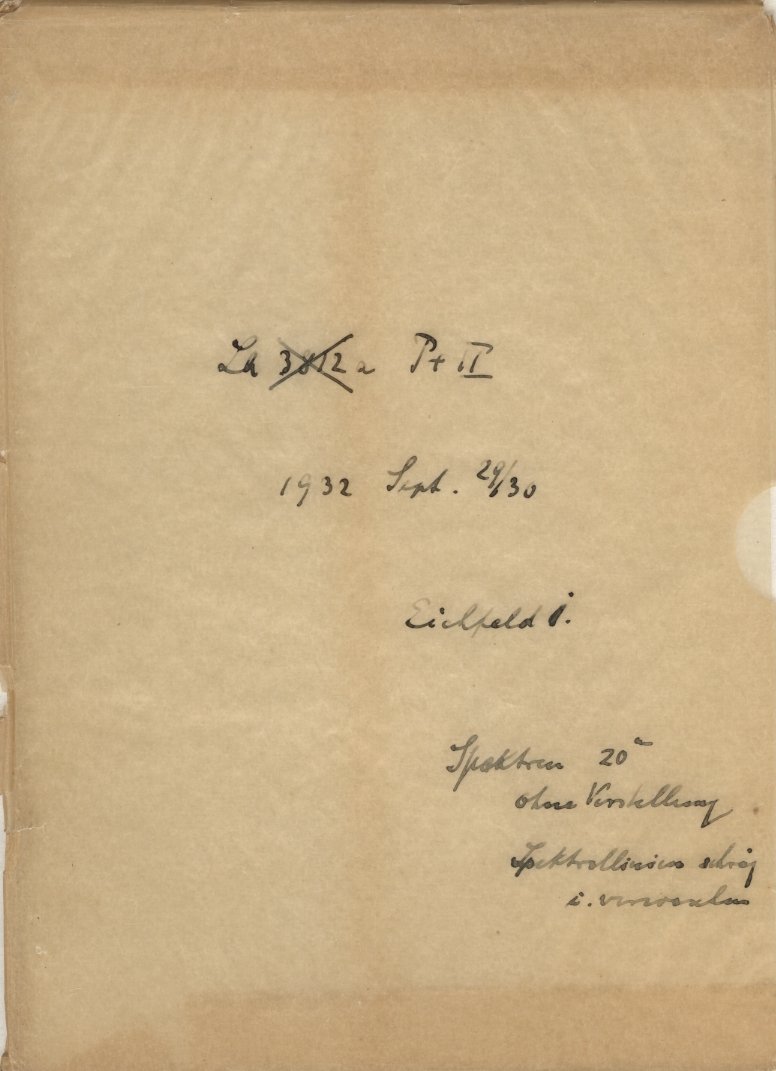 La 3812 a Pt II
1932 Sept. 29/30
Eichfeld I.
Spektren 20ᵃ
ohne Verstellung
Spektrallinien schräg